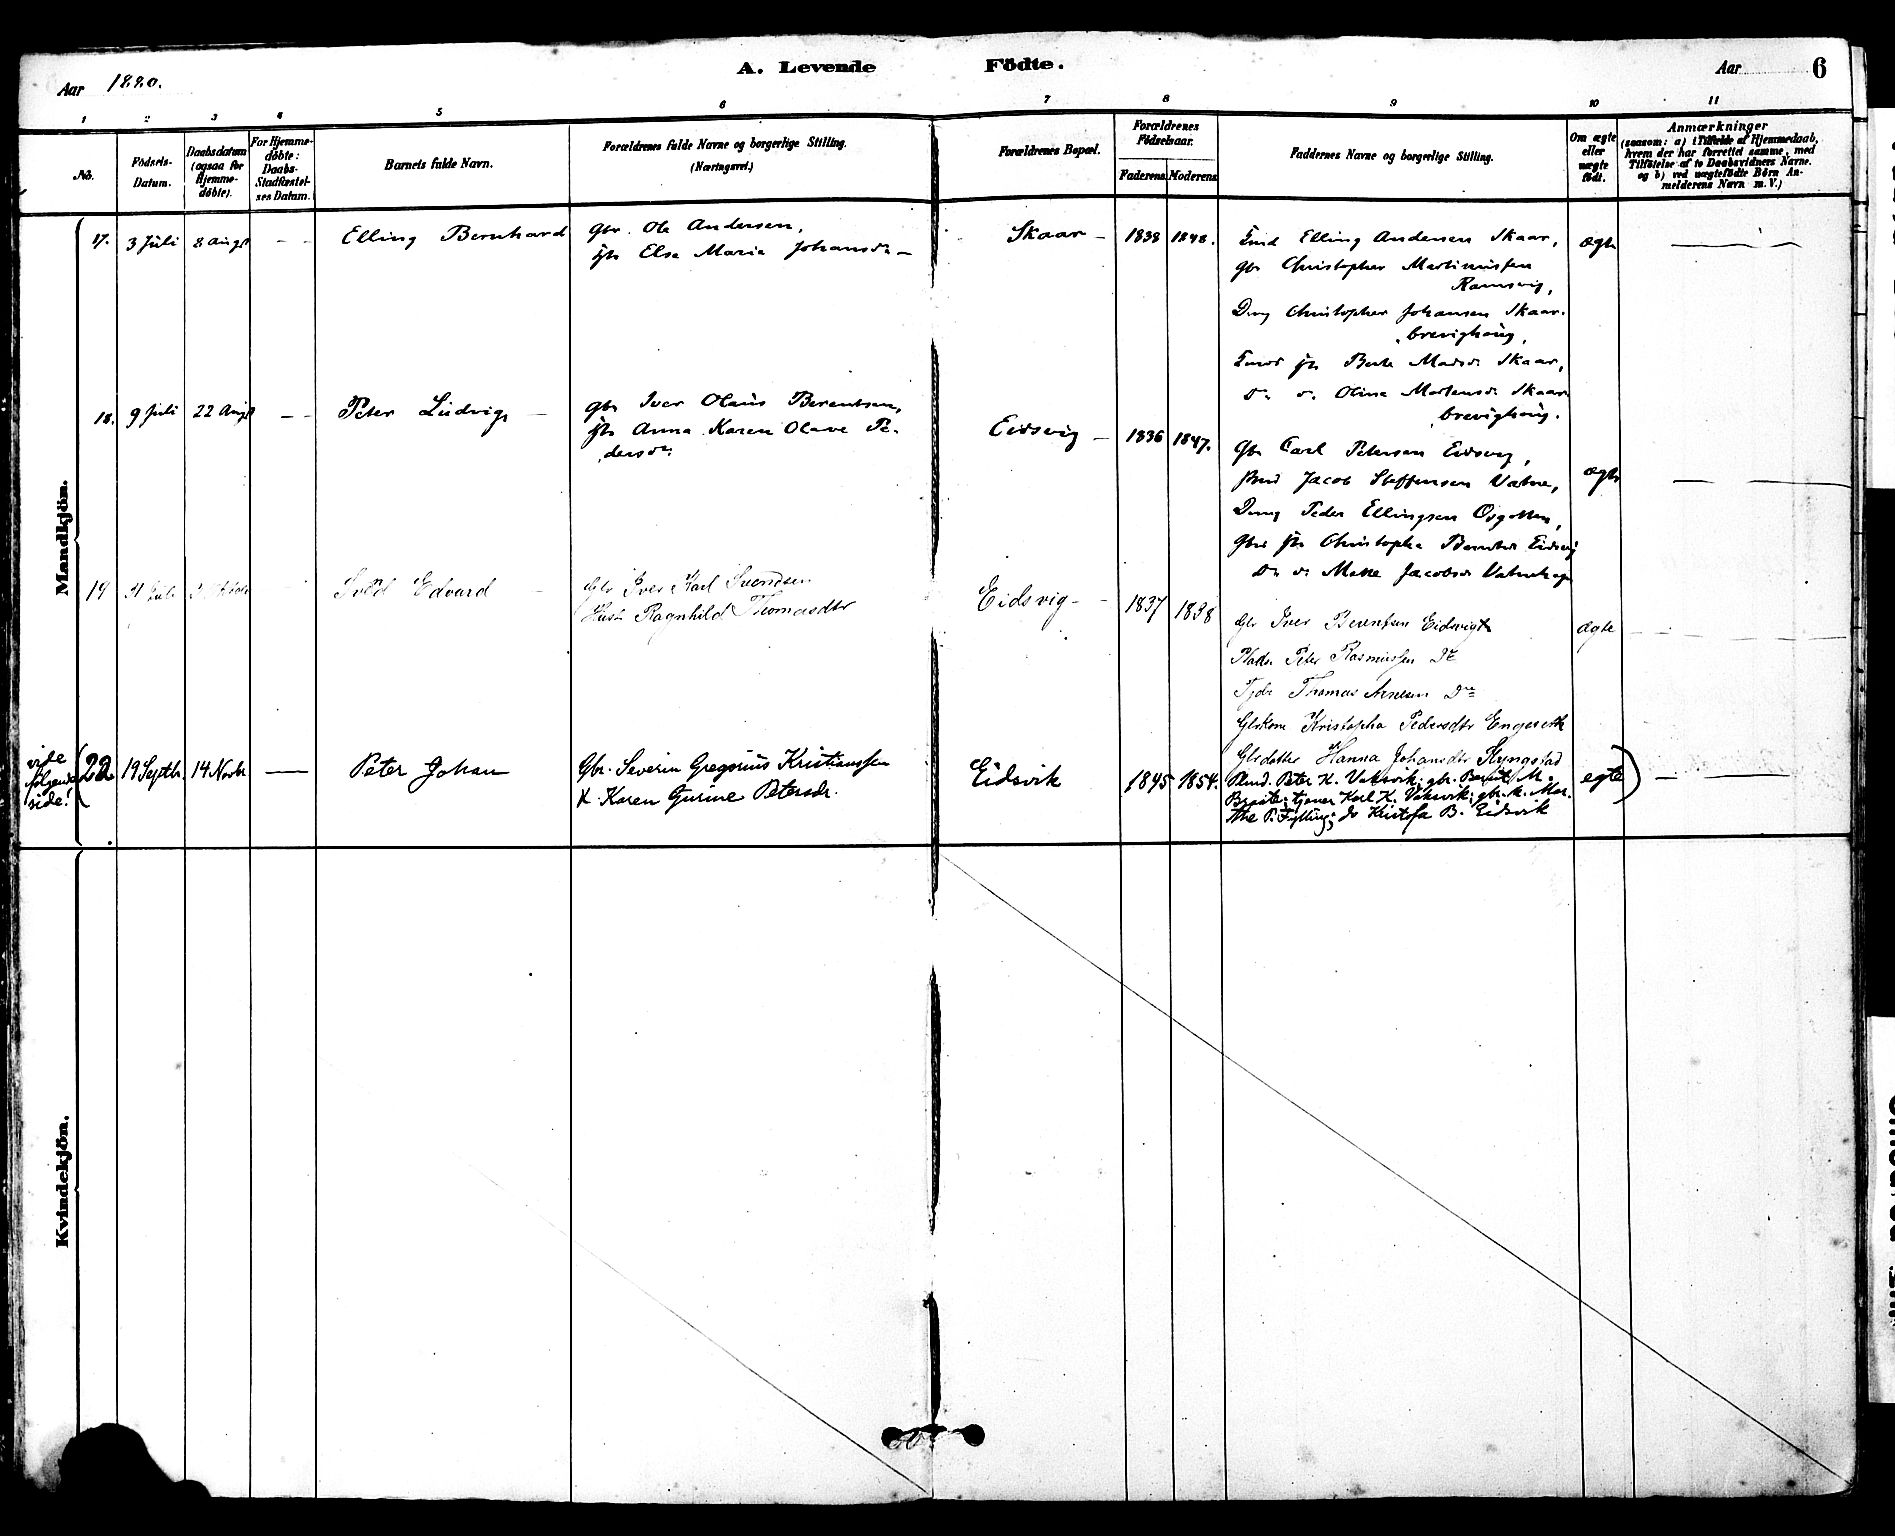 Aar 1880.
A. Levende Födte.
Aar 6
1 2 3 4 5 6 7 8 9 10 11
No.
Födsels-
Datum.
Daabsdatum
(ogsaa for
Hjemme-
döbte).
For Hjemme-
döbte:
Daabs-
Stadfæstel-
ses Datum.
Barnets fulde Navn.
Forældrenes fulde Navne og borgerlige Stilling.
(Næringsvei.)
Forældrenes Bopæl.
Forældrenes
Födselsaar.
Faderens. Moderens.
Faddernes Navne og borgerlige Stilling.
Om ægte
eller
uægte
födt.
Anmærkninger
(saasom: a) i Tilfælde af Hjemmedaab,
hvem der har forrettet samme, med
Tilföielse af to Daabsvidners Navne.
og b) ved uægtefödte Börn An-
melderens Navn m. V.)
Mandkjön.
17. 3 Juli 8 Augs — — Elling Bernhard
Gbr. Ole Andersen,
Else Maria Johansdr —
Skaar — 1838 1848.
Elling Andersen Skaar,
Gbr Christopher Martinussen
Ramsvig,
Dreng Christopher Johansen Skaar-
brevighaug,
Berte Madsdr Skaar,
Olina Martensdr Skaar
brevighaug.
ægte
18. 9 Juli 22 Augs — — Peter Ludvig —
Gbr Iver Olaus Berentsen,
Anna Karen Olave Pe-
dersdr
Eidsvig — 1836 1847.
Gbr Carl Petersen Eidsvig,
Jacob Steffensen Vatne,
Dreng Peder Ellingsen
Christopha Berntsdr Eidsvig
Jacobsdr
ægte
19 Juli Edvard —
Gbr Iver Karl Svendsen
Hustru Ragnhild Thomasdtr
Eidsvig — 1837 1838
Gbr Iver Berentsen Eidsvig
Peter Rasmussen Do
Thomas Do
Kristopha Pedersdtr Engeseth
Gbrdatter Hanna Johansdtr Ryngstad
ægte
vide
følgende
side!
22 19 Septbr. 14 Novbr — Peter Johan
Gbr. Severin Gregorius Kristianssen
K. Karen Gurine Petersdr.
Eidsvik 1845 1854.
Plmd. Peter K. Vaksvik; gbr. Bernt M.
Braute; tjener Karl K. Vaksvik; gbr. k. Mar-
the P. Fylling; do Kristofa B. Eidsvik
egte
Kvindekjön.